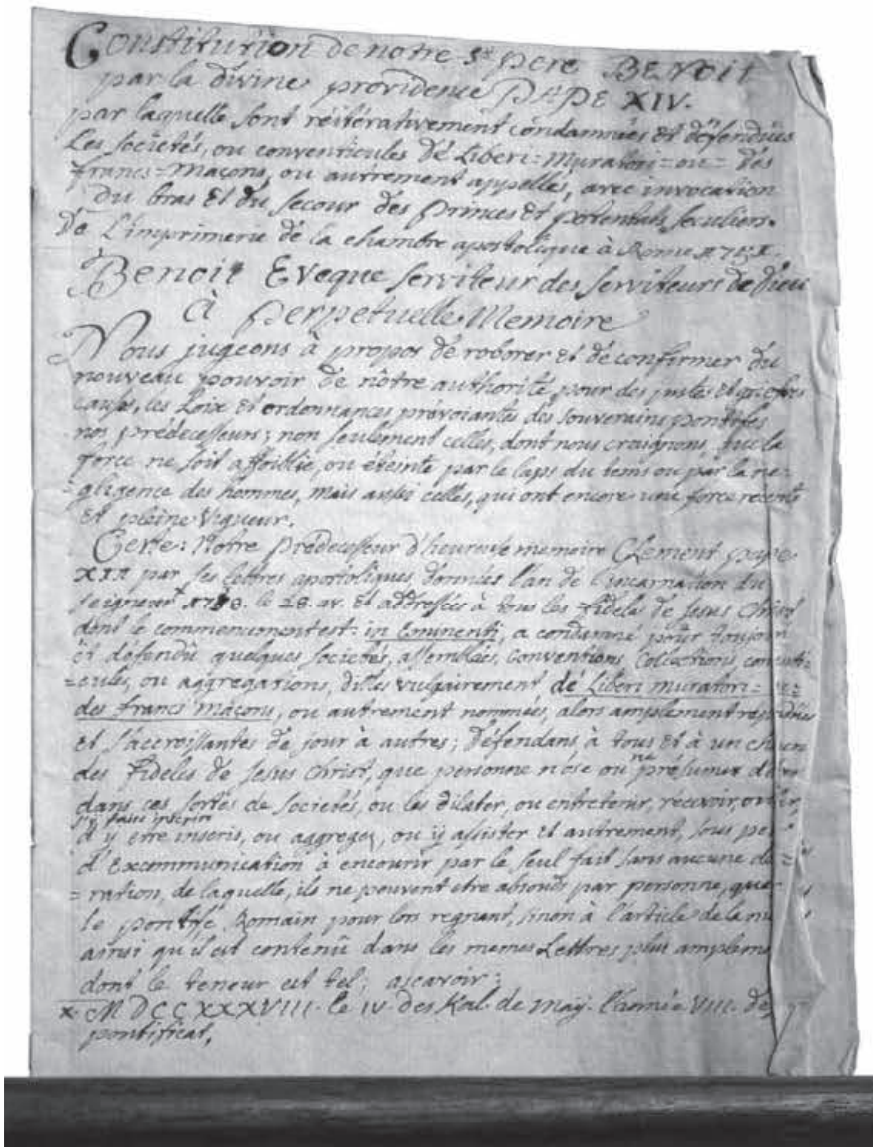 Constitution de notre St pere BENoit
par la divine providence PAPE XIV.
par laquelle sont réitérativement condamnées et défendües
Les societés, ou conventicules dé Liberi=Muratori=ou=dés
francs=Maçons, ou autrement appellés, avec invocation
Du bras Et du secour des princes Et potentats seculiers.
De L'imprimerie de la chambre apostolique à Rome 1751.
Benoit Eveque serviteur des serviteurs de Dieu
à perpetuelle Memoire
Nous jugeons à propos de roborer et de confirmer du
nouveau pouvoir de nôtre authorité pour des justes et
causes, les Loix Et ordonnances prévoiantes des souverains pontifes
nos prédecesseurs; non seulement celles, dont nous craignons, que la
force ne soit affoiblie, ou éteinte par le laps du tems ou par la ne=
=gligence des hommes, mais aussi celles, qui ont encore une force recente
Et pleine vigueur.
Certe: Notre prédecesseur d'heureuse memoire Clement pape
XII par ses lettres apostoliques, données l'an de l'incarnation du
seigneur 1738. le 28. av. Et addressées à tous les fidels de Jesus Christ
dont le commencement est: in Eminenti, a condamné pour toujour
et defendû quelques societés, assemblées, conventions, Collections, conventi=
=cules, ou aggregations, dittes vulgairement, dé Liberi muratori=
des francs maçons, ou autrement nommées, alors amplement
Et s'accroissantes de jour à autres; défendans à tous et à un chacun
des fideles de Jesus Christ, que personne n'ose ou ne présumer
dans ces sortes de societés, ou les dilater, ou entretenir, recevoir,
s'y faire inscrire
d'y etre inscris, ou aggregez, ou ÿ assister et autrement, sous
d'Excommunication à encourir par le seul fait sans aucune
=ration, de laquelle, ils ne peuvent etre absouds par personne, que
le pontife Romain pour lors regnant, sinon à l'article de la
ainsi qu'il est contenû dans les memes Lettres plus
dont le teneur est tel; ascavoir:
x. M DCCXXXVIII. le IV des Kal. de maÿ. l'année VIII. de
pontificat,